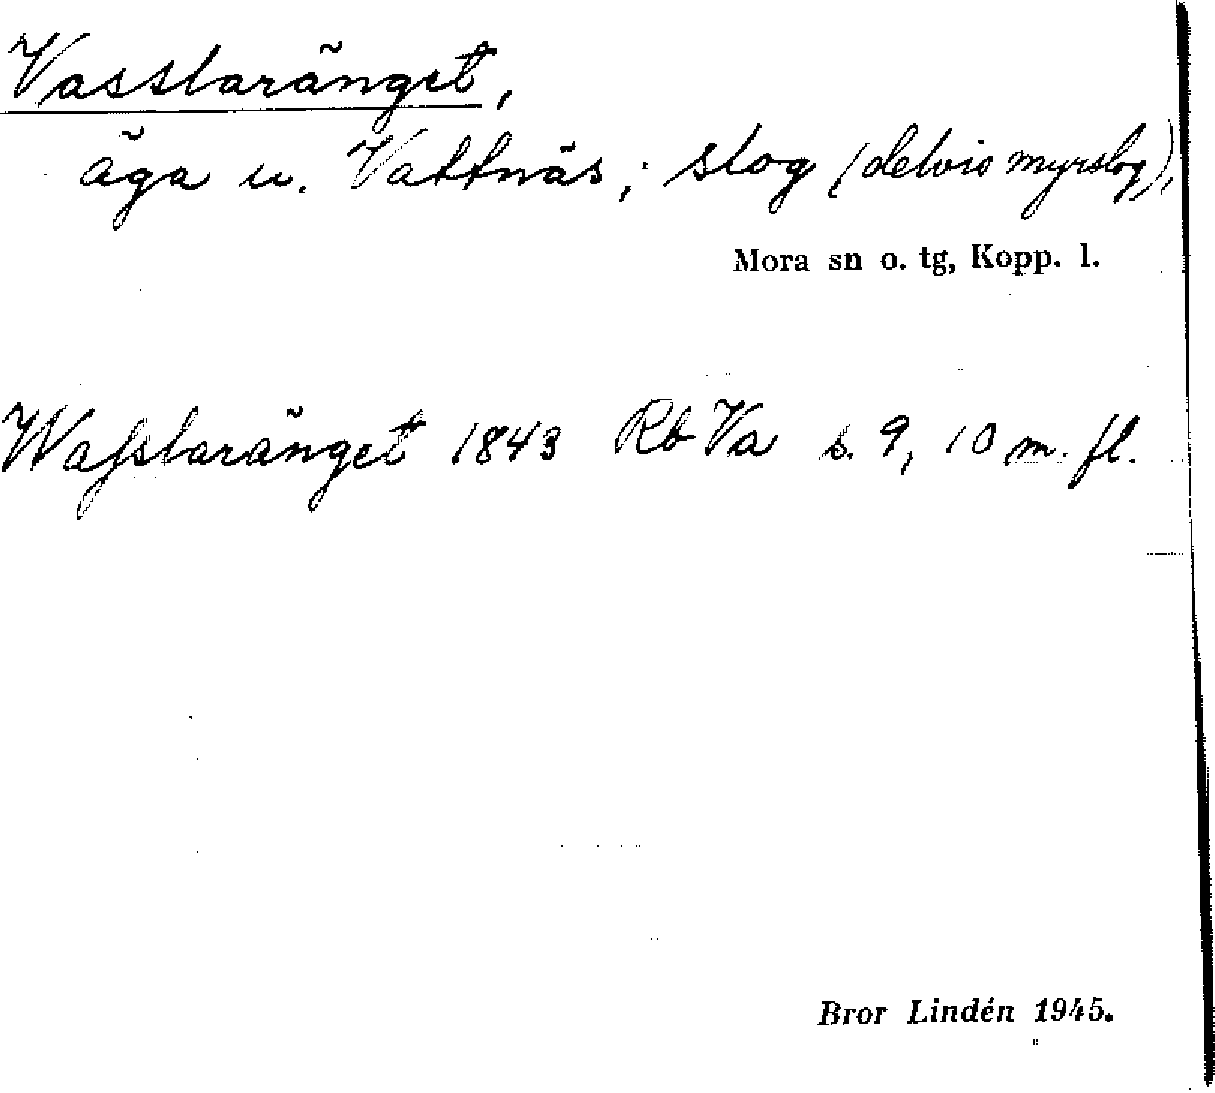 Vasslaränget,
äga u. Vattnäs; slog (delvis myrslog),
Mora sn o. tg, Kopp. l.
Wafslaränget 1843 Rb Va s. 9, 10 m. fl.
Bror Lindén 1945.